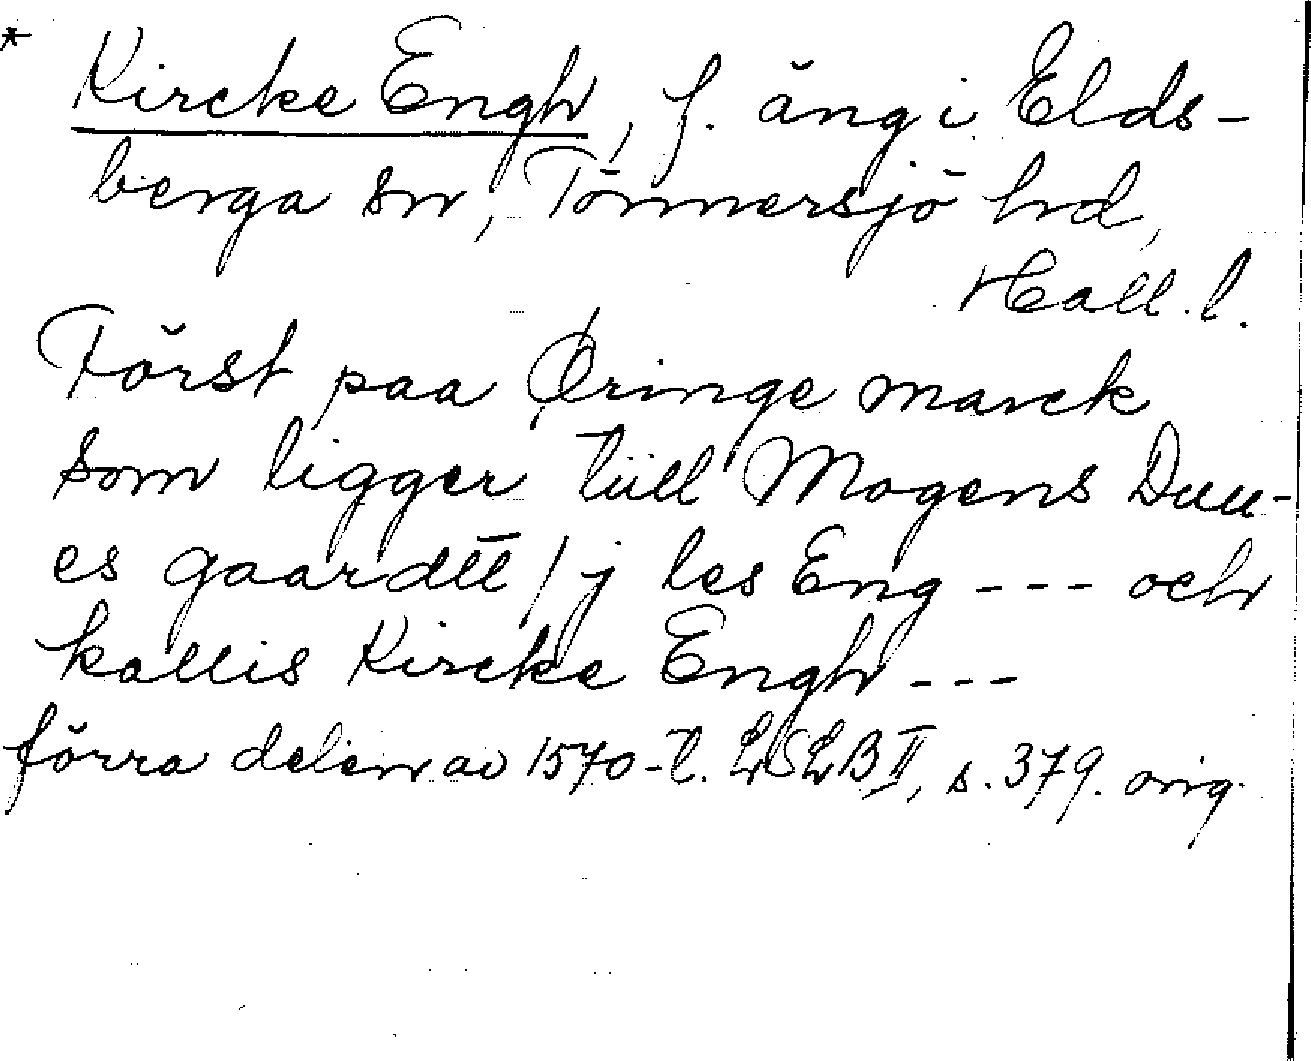 * Kircke Engh, f. äng i Elds-
berga sn, Tönnersjö hd,
Hall. l.
Först paa Øringe marck
som ligger tüll Mogens Duu-
es gaardtt / j les Eng --- och
kallis Kircke Engh ---
förra delen av 1570-t. LSLB II, s. 379. orig.